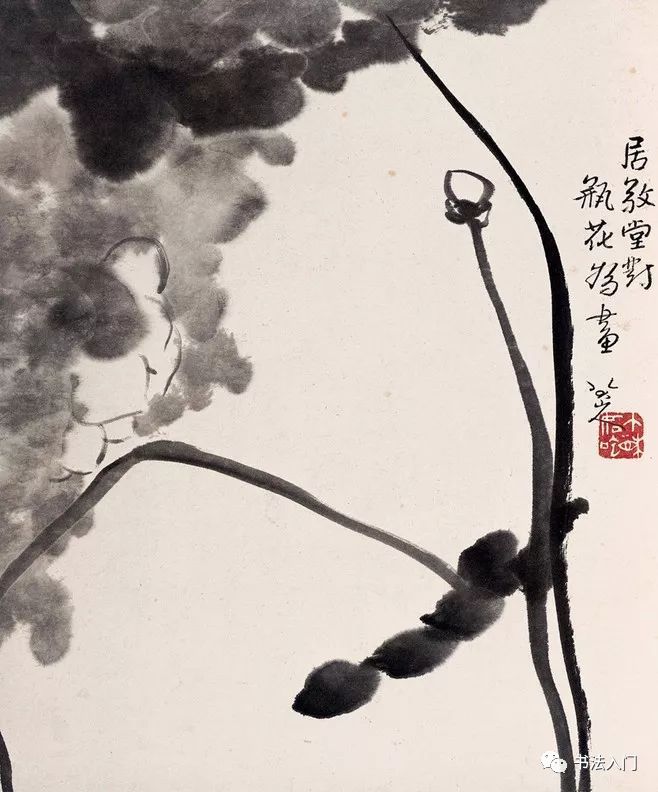 居敬堂對
瓶花為畫
书法入门